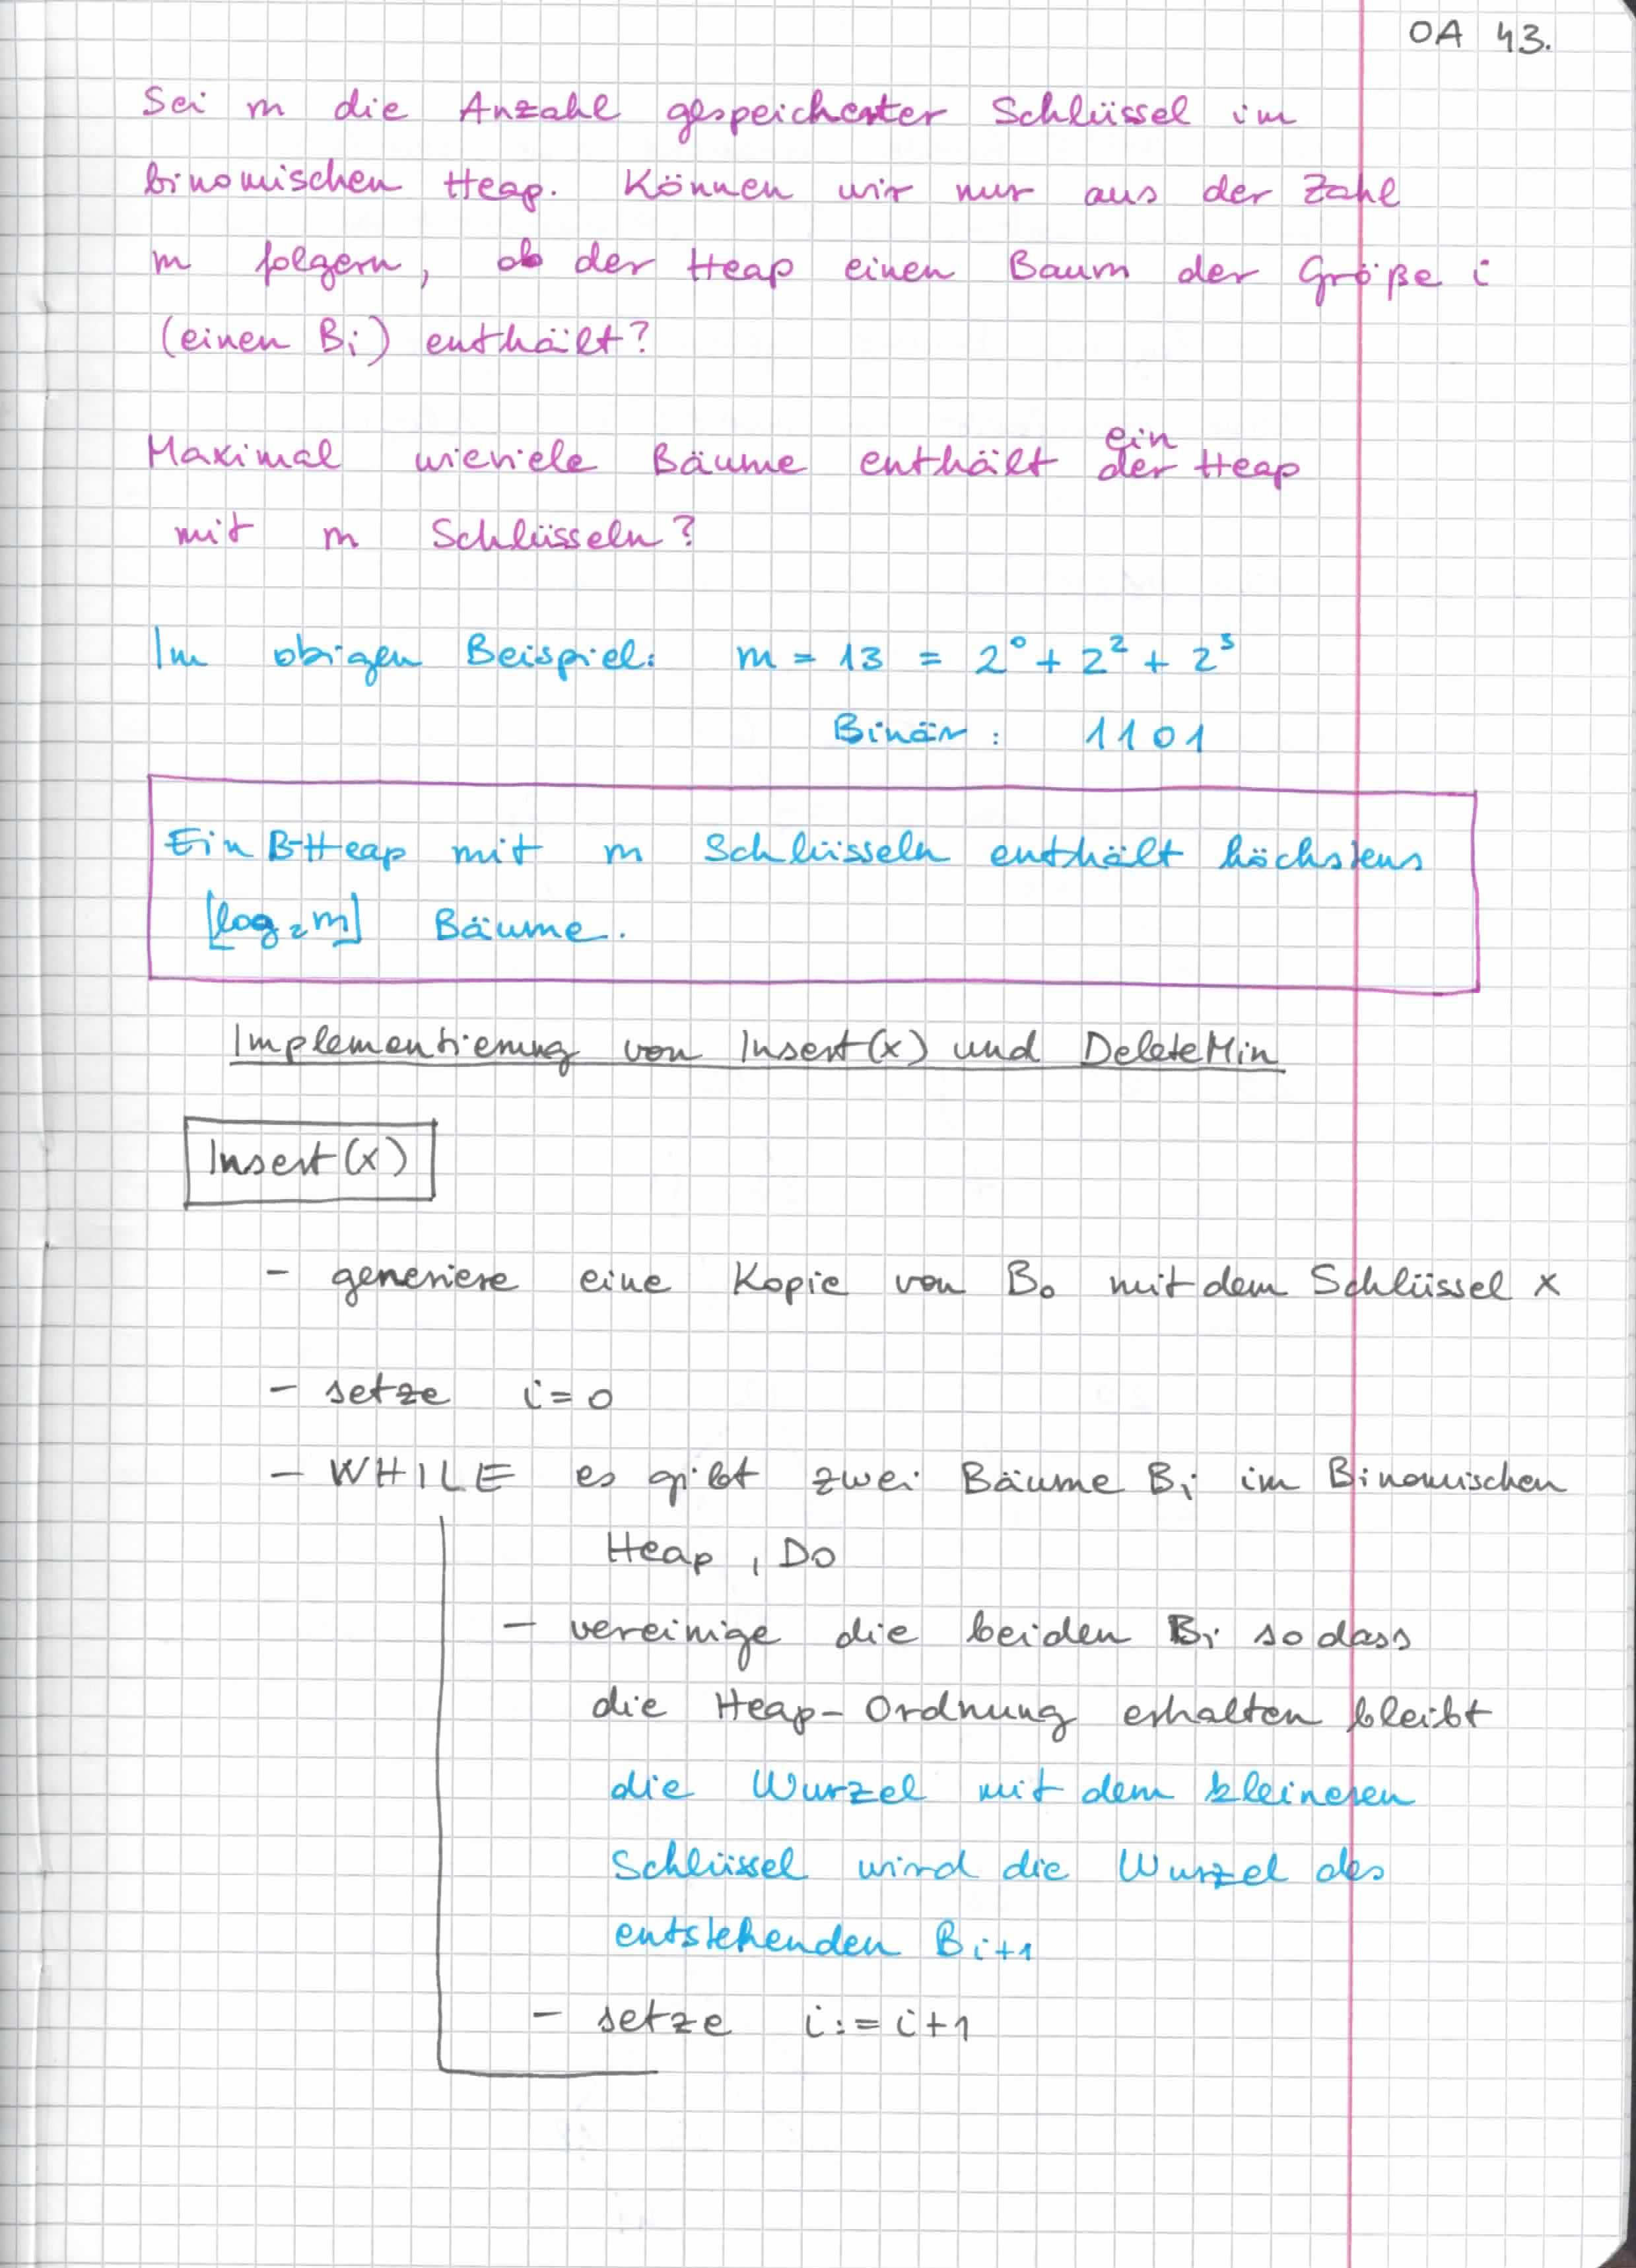 OA 43.
Sei m die Anzahl gespeicherter Schlüssel im
binomischen Heap. Können wir nur aus der Zahl
m folgern, ob der Heap einen Baum der Größe i
(einen Bi) enthält?
Maximal wieviele Bäume enthält der ein Heap
mit m Schlüsseln?
Im obigen Beispiel: m = 13 = 2⁰ + 2² + 2³
Binär: 1101
Ein B-Heap mit m Schlüsseln enthält höchstens
⌊log₂m⌋ Bäume.
Implementierung von Insert(x) und DeleteMin
Insert(x)
- generiere eine Kopie von B₀ mit dem Schlüssel x
- setze i=0
- WHILE es gibt zwei Bäume Bi im Binomischen
Heap, Do
- vereinige die beiden Bi so dass
die Heap-Ordnung erhalten bleibt
die Wurzel mit dem kleineren
Schlüssel wird die Wurzel des
entstehenden Bi+1
- setze i:=i+1